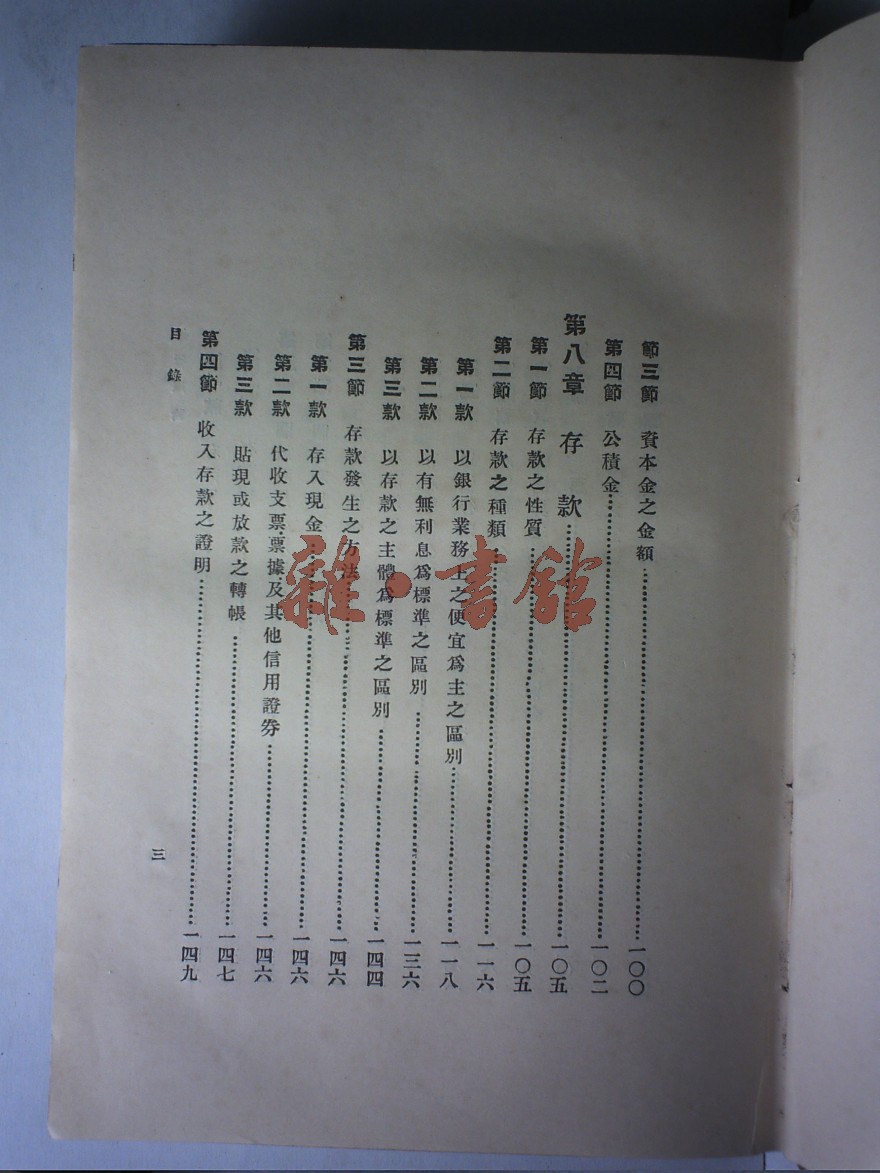 節三節 資本金之金額 一〇〇
第四節 公積金 一〇二
第八章 存款 一〇五
第一節 存款之性質 一〇五
第二節 存款之種類 一一六
第一款 以銀行業務上之便宜爲主之區別 一一八
第二款 以有無利息爲標準之區別 一三六
第三款 以存款之主體爲標準之區別 一四四
第三節 存款發生之方法 一四六
第一款 存入現金 一四六
第二款 代收支票票據及其他信用證券 一四六
第三款 貼現或放款之轉帳 一四七
第四節 收入存款之證明 一四九
目錄 三
雜·書館